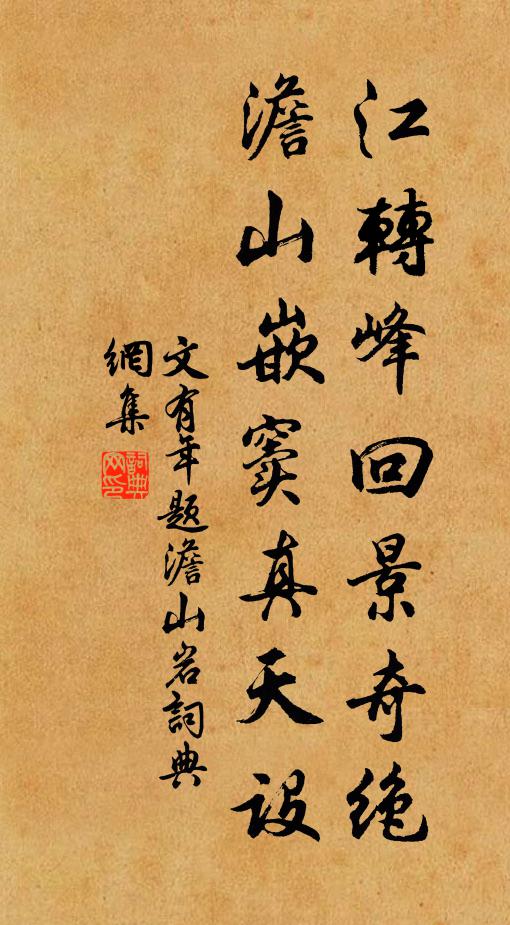 江轉峰回景奇絶
澹山嵌竇真天設
文有年題澹山岩詞典
網集
詞典
网印